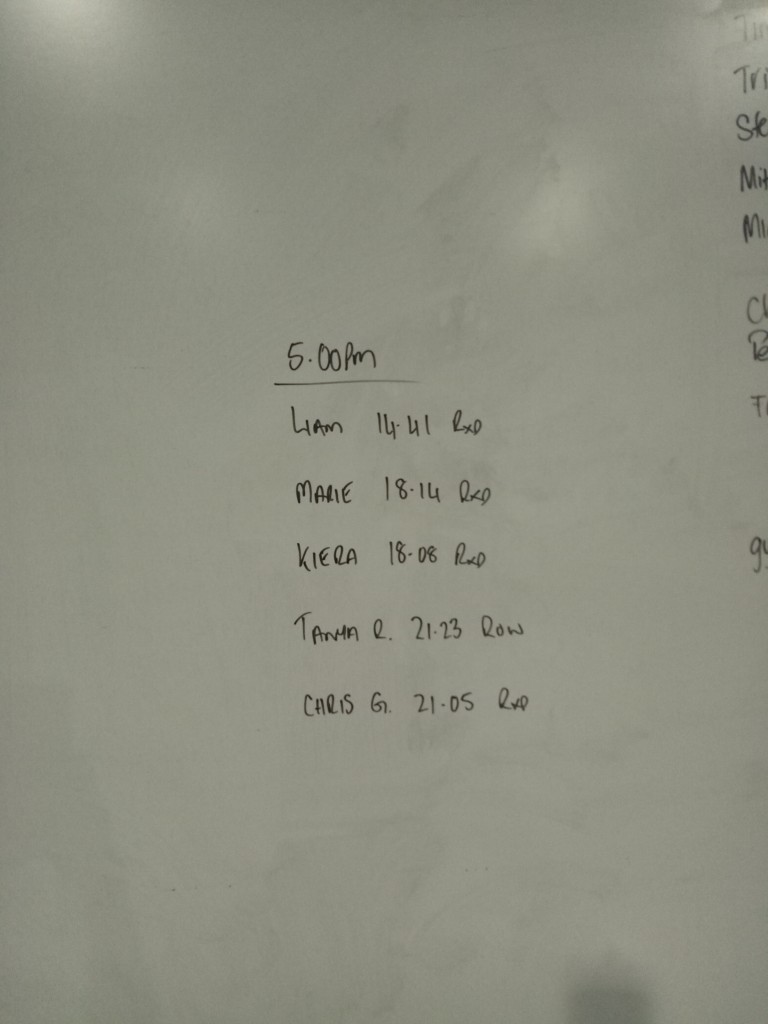 5.00Pm
LIAM 14.41 RXD
MARIE 18.14 RXD
KIERA 18.08 RXD
TANYA R. 21.23 ROW
CHRIS G. 21.05 RXD
Tri
Ste
Mit